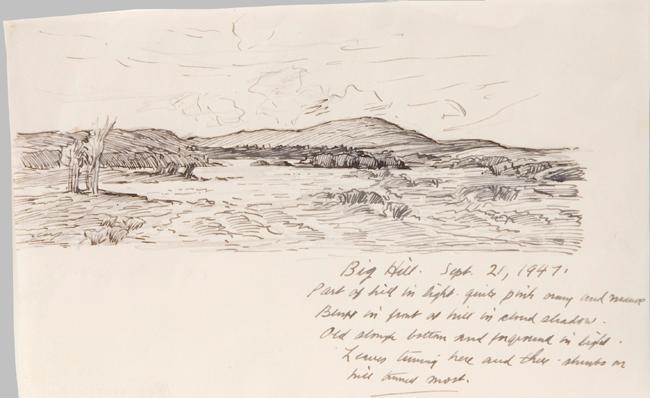 Big Hill. Sept. 21, 1947.
Part of hill in light. quite pink and
Bluff in front of hill in cloud shadow.
Old slough bottom and forground in light.
Leaves turning here and there - shrubs on
hill turned most.